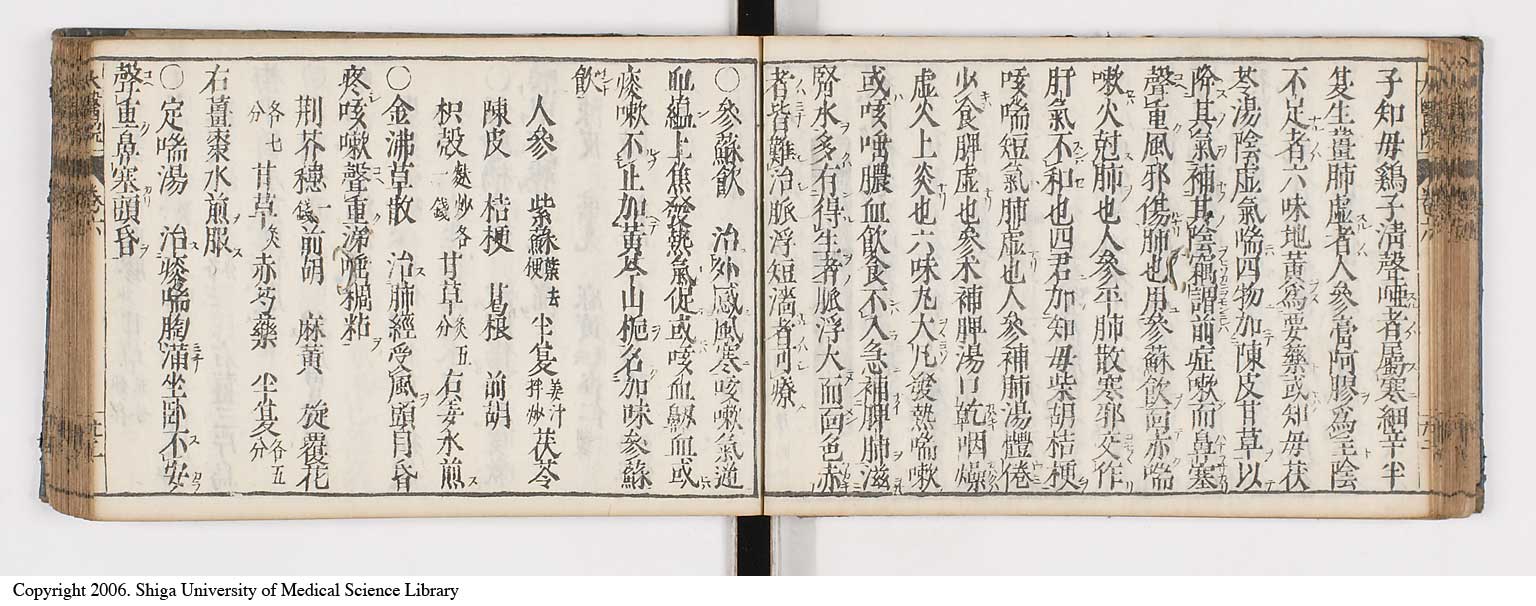 子知毋鷄子淸聲啞者屬寒細辛半
夏生薑肺虛者人參膏阿膠爲主陰
不足者六味地黃爲要藥或知毋茯
苓湯陰虛氣喘四物加陳皮甘草以
降其氣補其陰稿謂前症嗽而鼻塞
聲重風邪傷肺也用參蘇飮面赤喘
嗽火尅肺也人參平肺散寒邪交作
肝氣不和也四君加知毋柴胡桔梗
咳喘短氣肺虛也人參補肺湯體倦
少食脾虛也參朮補脾湯口乾咽燥
虛火上炎也六味丸大凡發熱喘嗽
或咳唾膿血飮食不入急補脾肺滋
腎水多有得生者脈浮大而面色赤
者皆難治脈浮短濇者可療
〇參蘇飮 治外感風寒咳嗽氣逆
血蘊上焦發熱氣促或咳血衂血或
痰嗽不止加黃芩山梔名加味參蘇
飮
人參 紫蘇葉去梗 半夏姜汁拌炒 茯苓
陳皮 桔梗 葛根 前胡
枳殻麩炒各一錢 甘草炙五分 右姜水煎
〇金沸草散 治肺經受風頭目昏
疼咳嗽聲重涕唾稠粘
荆芥穗一錢 前胡 麻黃 旋覆花
各七分 甘草炙 赤芍藥 半夏各五分
右薑棗水煎服
〇定喘湯 治痰喘胸滿坐臥不安
聲重鼻塞頭昏
Copyright 2006. Shiga University of Medical Science Library